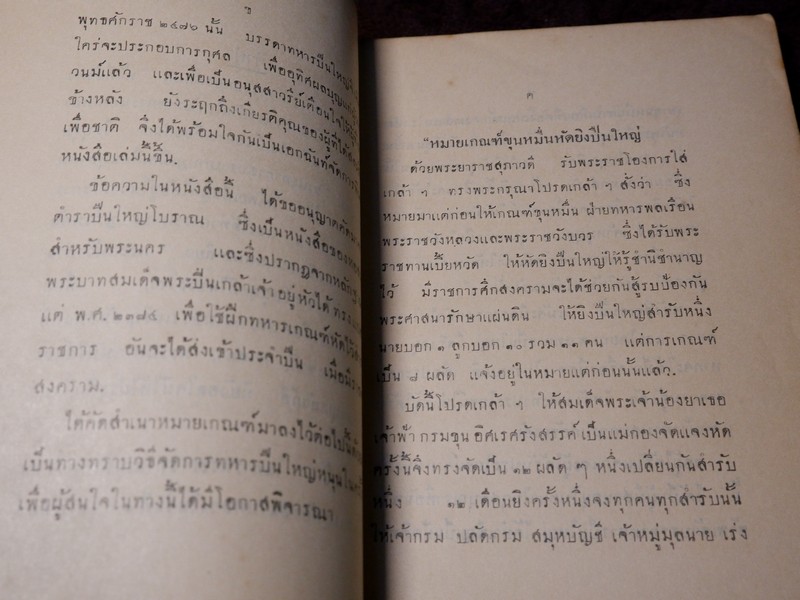 ข
พุทธศักราช ๒๔๗๖ นั้น บรรดาทหารปืนใหญ่
ใคร่จะประกอบการกุศล เพื่ออุทิศผลบุญ
วนม์แล้ว และเพื่อเป็นอนุสสาวรีย์เตือนใจให้
ข้างหลัง ยังระฤกถึงเกียรติคุณของผู้ที่ได้
เพื่อชาติ จึ่งได้พร้อมใจกันเป็นเอกฉันท์จัดการ
หนังสือเล่มนี้ขึ้น.
ข้อความในหนังสือนี้ ได้ขออนุญาตคัด
ตำราปืนใหญ่โบราณ ซึ่งเป็นหนังสือของ
สำหรับพระนคร และซึ่งปรากฏจากหลัก
พระบาทสมเด็จพระปิ่นเกล้าเจ้าอยู่หัวได้ทรง
แต่ พ.ศ. ๒๓๗๔ เพื่อใช้ฝึกทหารเกณฑ์หัดไว้
ราชการ อันจะได้ส่งเข้าประจำปืน เมื่อ
สงคราม.
ได้คัดสำเนาหมายเกณฑ์มาลงไว้ต่อไปนี้
เป็นทางทราบวิธีจัดการทหารปืนใหญ่หนุน
เพื่อผู้สนใจในทางนี้ได้มีโอกาสพิจารณา
ค
"หมายเกณฑ์ขุนหมื่นหัดยิงปืนใหญ่
ด้วยพระยาราชสุภาวดี รับพระราชโองการใส่
เกล้า ฯ ทรงพระกรุณาโปรดเกล้า ฯ สั่งว่า ซึ่ง
หมายมาแต่ก่อนให้เกณฑ์ขุนหมื่น ฝ่ายทหารพลเรือน
พระราชวังหลวงและพระราชวังบวร ซึ่งได้รับพระ
ราชทานเบี้ยหวัด ให้หัดยิงปืนใหญ่ให้รู้ชำนิชำนาญ
ไว้ มีราชการศึกสงครามจะได้ช่วยกันสู้รบป้องกัน
พระศาสนารักษาแผ่นดิน ให้ยิงปืนใหญ่สำรับหนึ่ง
นายบอก ๑ ลูกบอก ๑๐ รวม ๑๑ คน แต่การเกณฑ์
เป็น ๘ ผลัด แจ้งอยู่ในหมายแต่ก่อนนั้นแล้ว.
บัดนี้โปรดเกล้า ฯ ให้สมเด็จพระเจ้าน้องยาเธอ
เจ้าฟ้า กรมขุน อิศเรศรังสรรค์ เป็นแม่กองจัดแจงหัด
ครั้งนี้จึ่งทรงจัดเป็น ๑๒ ผลัด ๆ หนึ่งเปลี่ยนกันสำรับ
หนึ่ง ๑๒ เดือนยิงครั้งหนึ่งจงทุกคนทุกสำรับนั้น
ให้เจ้ากรม ปลัดกรม สมุหบัญชี เจ้าหมู่มุลนาย เร่ง